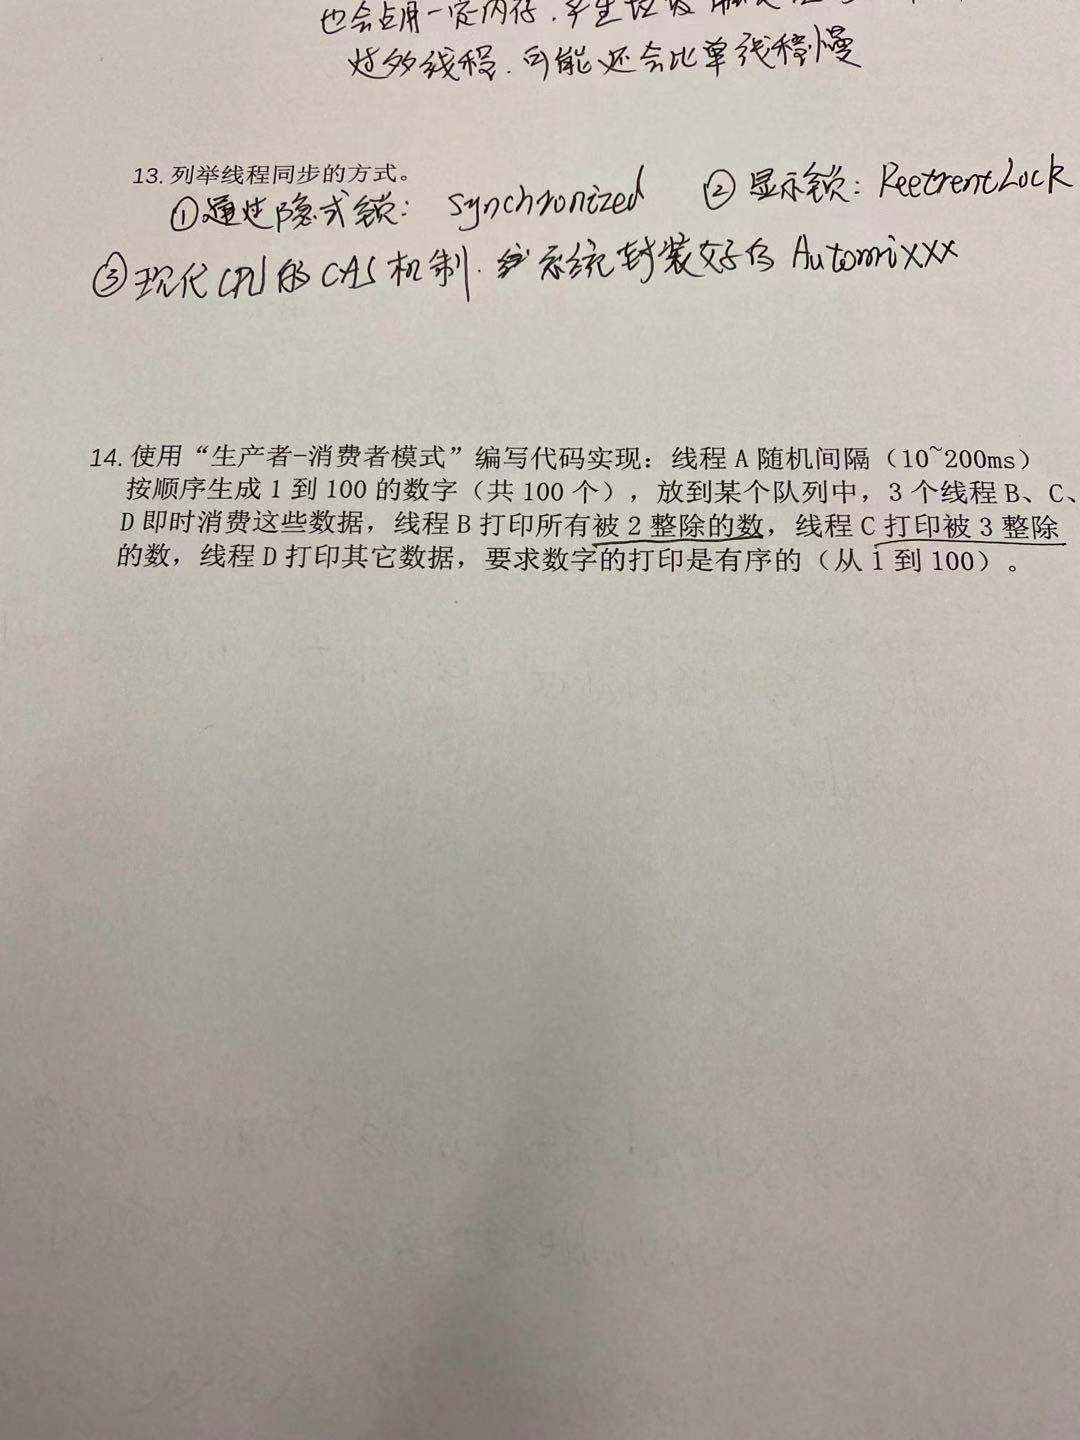 也会占用一定内存.产生垃圾
过多线程.可能还会比单线程慢
13. 列举线程同步的方式。
①通过隐式锁: Synchronized ②显示锁: ReetrentLock
③现代CPU的CAS机制. 系统封装好的 Automixxx
14. 使用“生产者-消费者模式”编写代码实现：线程 A 随机间隔（10~200ms）
按顺序生成 1 到 100 的数字（共 100 个），放到某个队列中，3 个线程 B、C、
D 即时消费这些数据，线程 B 打印所有被 2 整除的数，线程 C 打印被 3 整除
的数，线程 D 打印其它数据，要求数字的打印是有序的（从 1 到 100）。